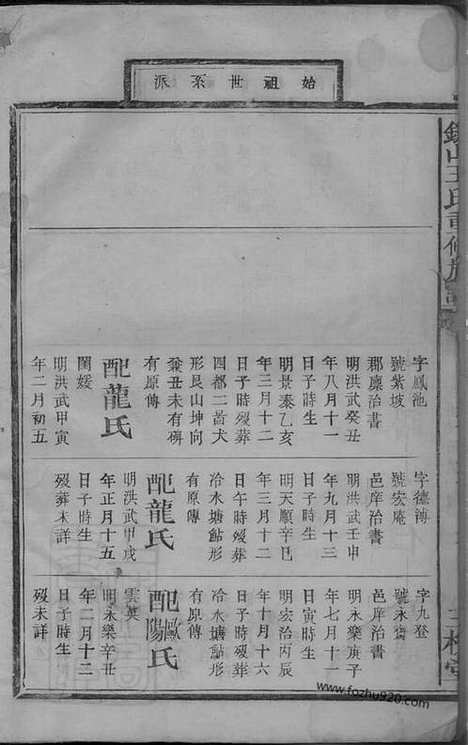 始祖世系派
王氏重修族譜
字鳳池
號紫坡
郡廩治書
明洪武癸丑
年八月十一
日子時生
明景泰乙亥
年三月十二
日子時歿葬
四都二啚犬
形艮山坤向
兼丑未有碑
有原傳
配龍氏
閨媛
明洪武甲寅
年二月初五
字德溥
號宏庵
邑庠治書
明洪武壬申
年九月十三
日子時生
明天順辛巳
年三月十二
日午時歿葬
冷水塘鮎形
有原傳
配龍氏
明洪武甲戌
年正月十五
日子時生
歿葬未詳
字九登
號永齋
邑庠治書
明永樂庚子
年七月十一
日寅時生
明宏治丙辰
年十月十六
日子時歿葬
冷水塘鮎形
有原傳
配歐陽氏
雲英
明永樂辛丑
年二月十二
日子時生
歿未詳
www.fozhu920.com